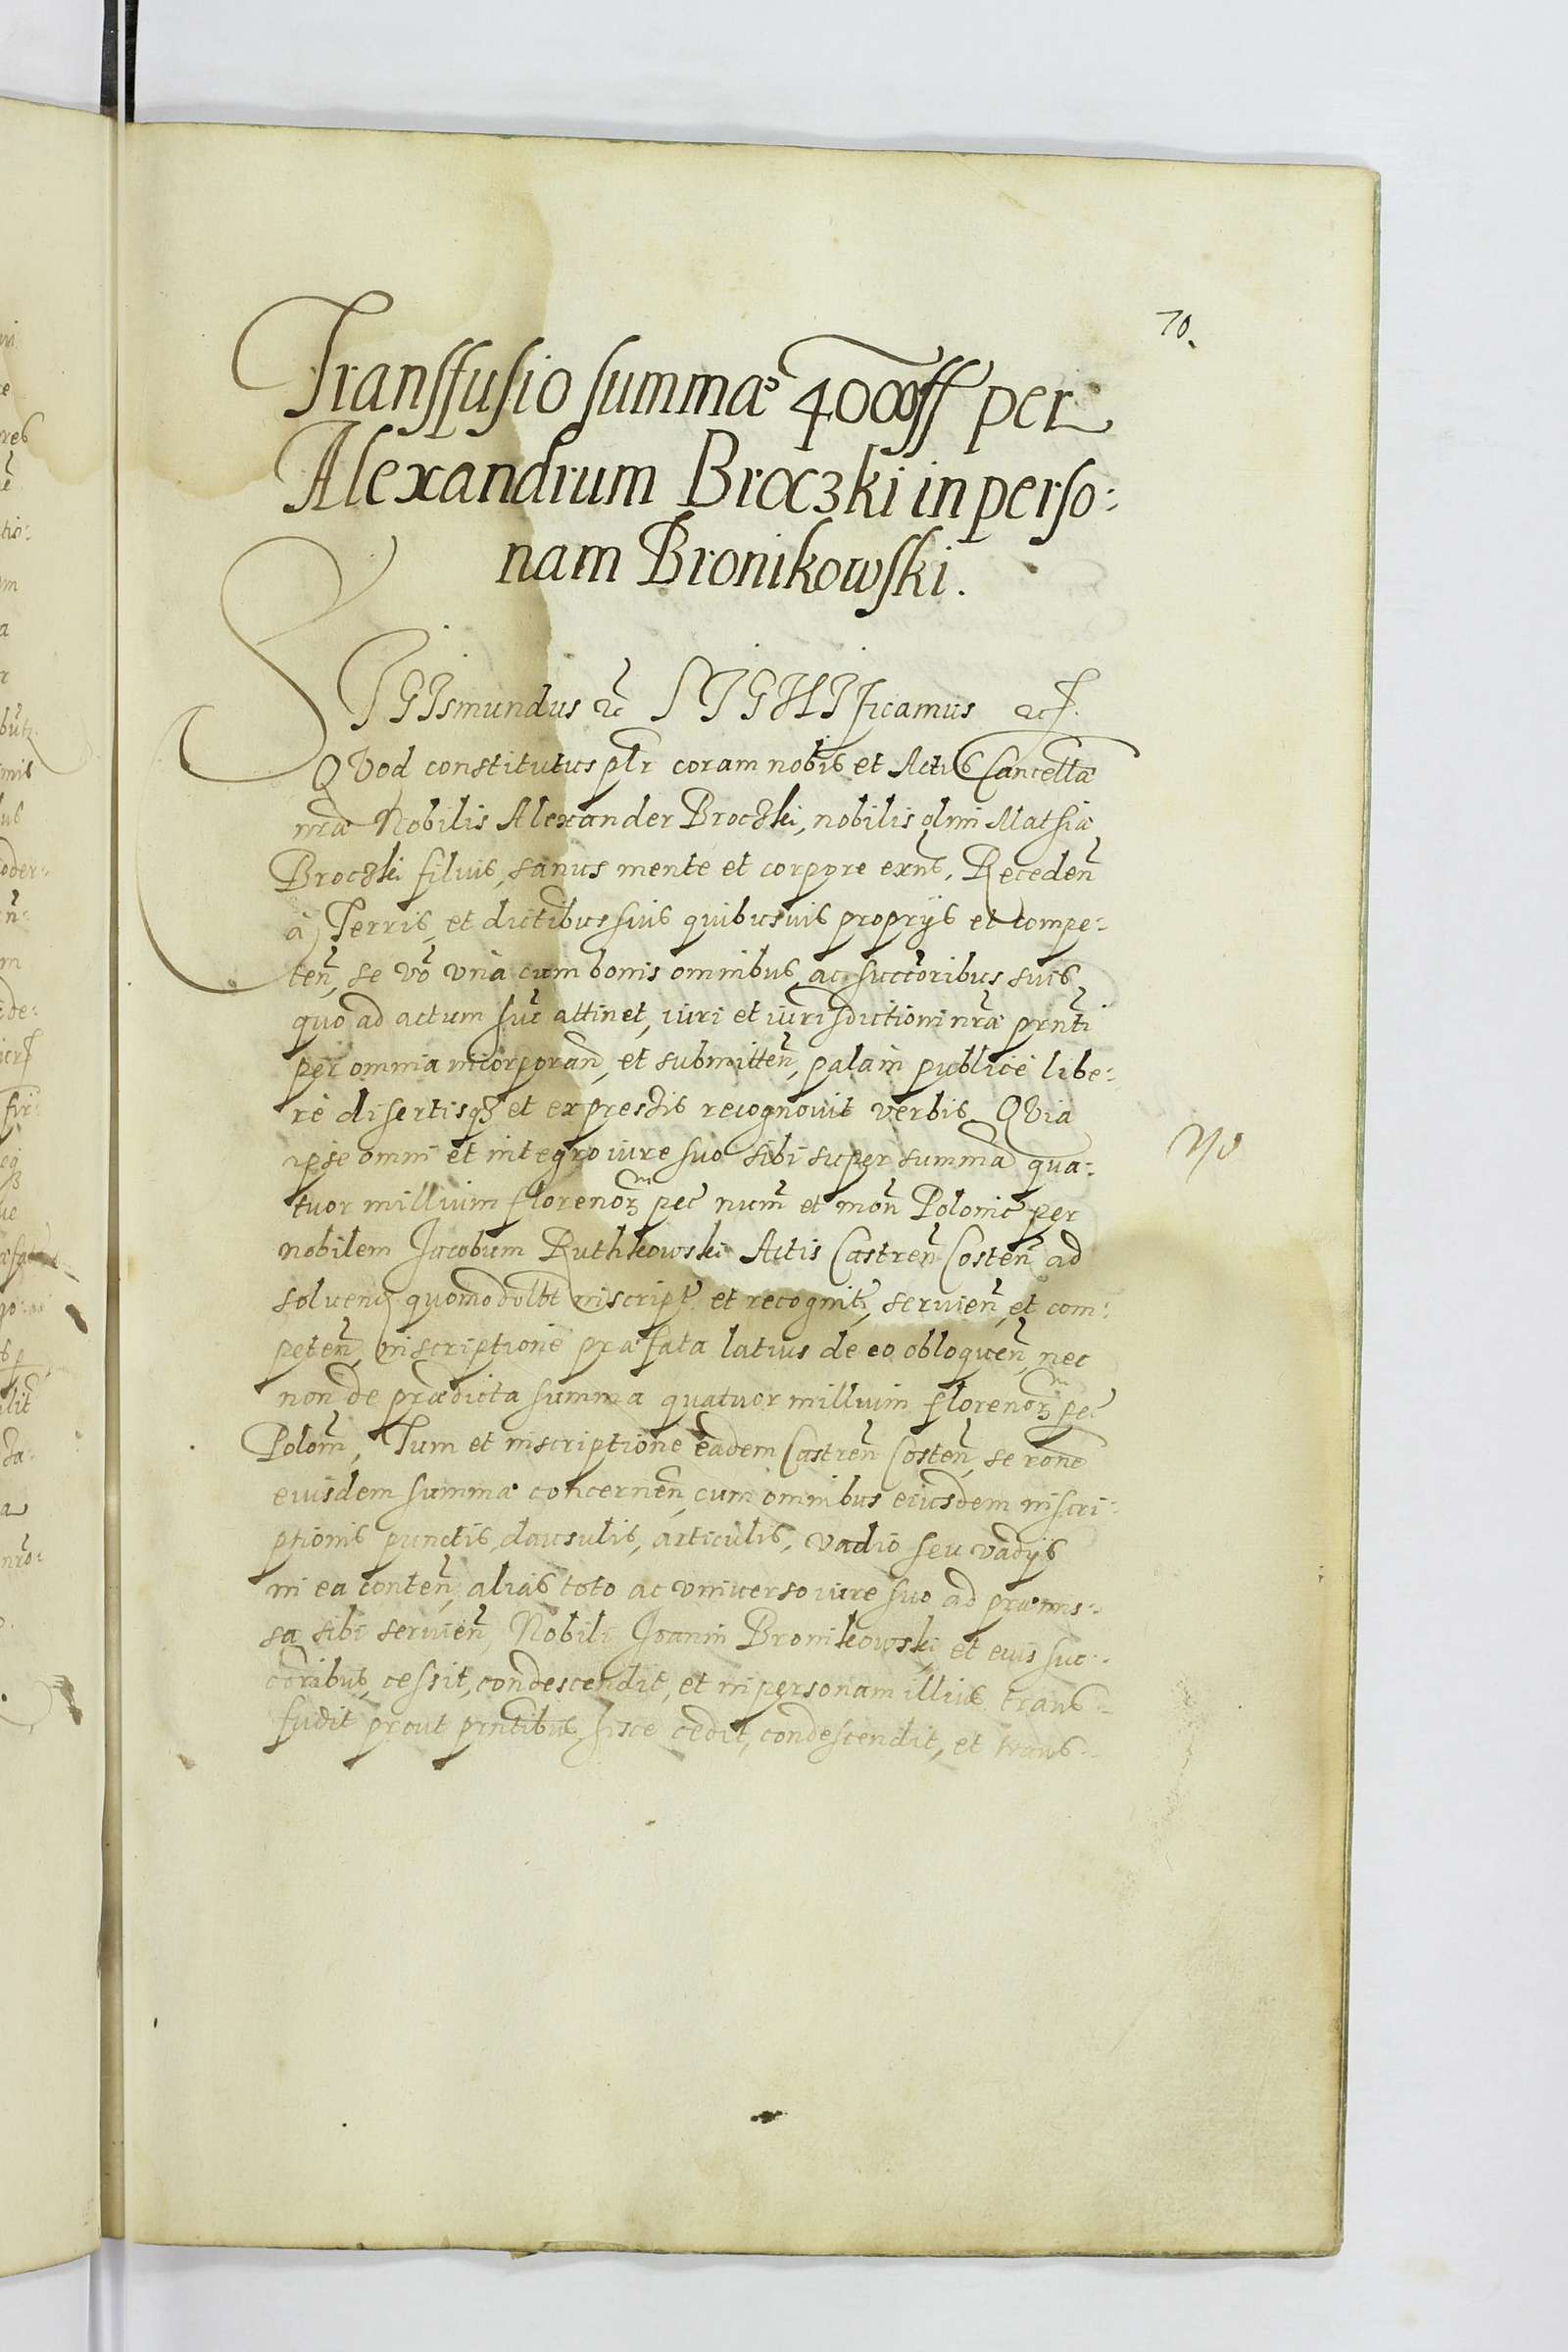 70.
Transsfusio summæ 4000ff per
Alexandrum Broczki in perso:
nam Bronikowski.
SIGIsmundus etc̃ SIGNIficamus etc.
QVod constitutus pl̃r coram nobis et Actis Cancellæ
nr̃æ Nobilis Alexander Broczki, nobilis olim Mathiæ
Broczki filius, sanus mente et corpore exñs, Recedeñ
à Terris, et dictiõibus suis quibusuis proprijs et compe:
teñ, se võ vnà cum bonis omnibus, ac succ̃oribus suis,
quo ad actum huc̃ attinet, iuri et iurisdictioni nr̃æ prñti
per omnia incorporañ, et submitteñ, palam publice libe:
rè disertisqȝ et expressis recognouit verbis. QVia
ipse omni et integro iure suo sibi super summa qua:
tuor millium florenoꝝ pec̃ num̃ et moñ Polonic̃ per
nobilem Jacobum Ruthkowski Actis Castreñ Costeñ ad
soluend quomodolbt inscript̃ et recognit̃, seruieñ, et com:
peteñ, inscriptione præfata latius de eo obloqueñ, nec
non de prædicta summa quatuor millium florenoꝝ pec̃
Poloñ, Tum et inscriptione eadem Castreñ Costeñ, se rõne
eiusdem summæ concerneñ, cum omnibus eiusdem inscri:
ptionis punctis, clausulis, articulis, vadio seu vadijs
in ea conteñ, alias toto ac vniuerso iure suo ad præmis:
sa sibi seruieñ, Nobili Joanni Bronikowski, et eius suc:
c̃oribus, cessit, condescendit, et in personam illius trans:
fudit prout prñtibus hisce cedit, condescendit, et trans: